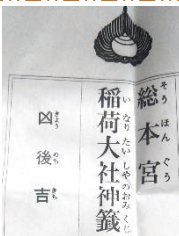 総本宮
そうほんぐう
稲荷大社神籤
いなりたいしやのおみくじ
凶後吉
きようのちきち